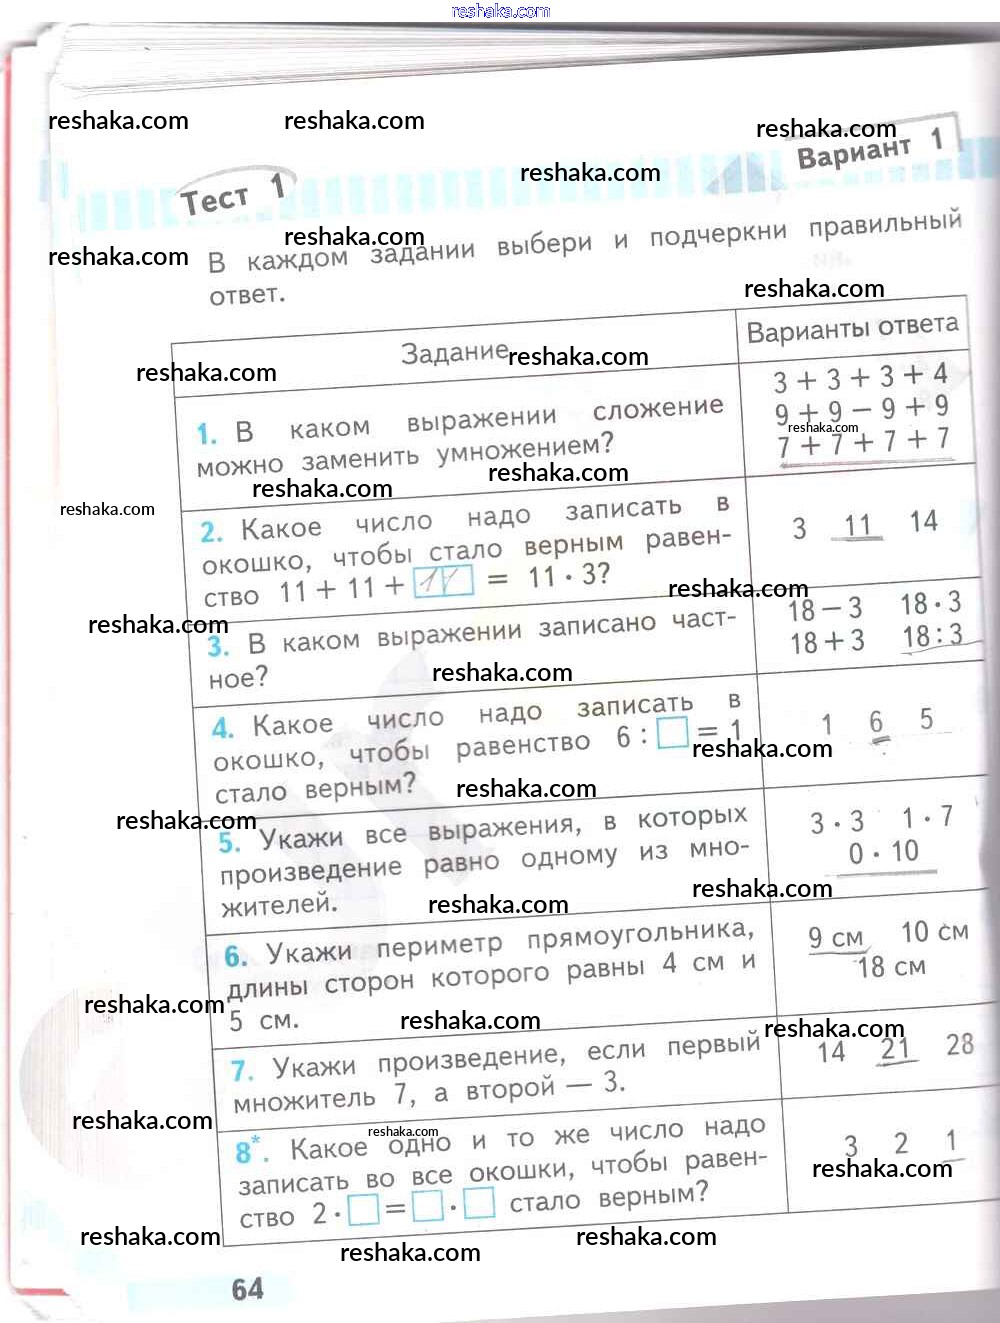 reshaka.com
reshaka.com reshaka.com reshaka.com
Вариант 1
reshaka.com
Тест 1
reshaka.com reshaka.com
В каждом задании выбери и подчеркни правильный
ответ.
reshaka.com
Задание Варианты ответа
reshaka.com reshaka.com
1. В каком выражении сложение
можно заменить умножением?
3 + 3 + 3 + 4
9 + 9 − 9 + 9
reshaka.com
7 + 7 + 7 + 7
reshaka.com reshaka.com
reshaka.com
2. Какое число надо записать в
окошко, чтобы стало верным равен-
ство 11 + 11 + 11 = 11 · 3?
3 11 14
reshaka.com
reshaka.com
3. В каком выражении записано част-
ное?
18 − 3 18 · 3
18 + 3 18 : 3
reshaka.com
4. Какое число надо записать в
окошко, чтобы равенство 6 : = 1
стало верным?
1 6 5
reshaka.com
reshaka.com
reshaka.com
5. Укажи все выражения, в которых
произведение равно одному из мно-
жителей.
3 · 3 1 · 7
0 · 10
reshaka.com
reshaka.com
6. Укажи периметр прямоугольника,
длины сторон которого равны 4 см и
5 см.
9 см 10 см
18 см
reshaka.com reshaka.com reshaka.com
7. Укажи произведение, если первый
множитель 7, а второй — 3.
14 21 28
reshaka.com reshaka.com
8*. Какое одно и то же число надо
записать во все окошки, чтобы равен-
ство 2 · = · стало верным?
3 2 1
reshaka.com
reshaka.com reshaka.com reshaka.com
64